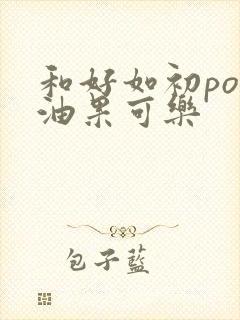 和好如初po
油果可樂
包子藍